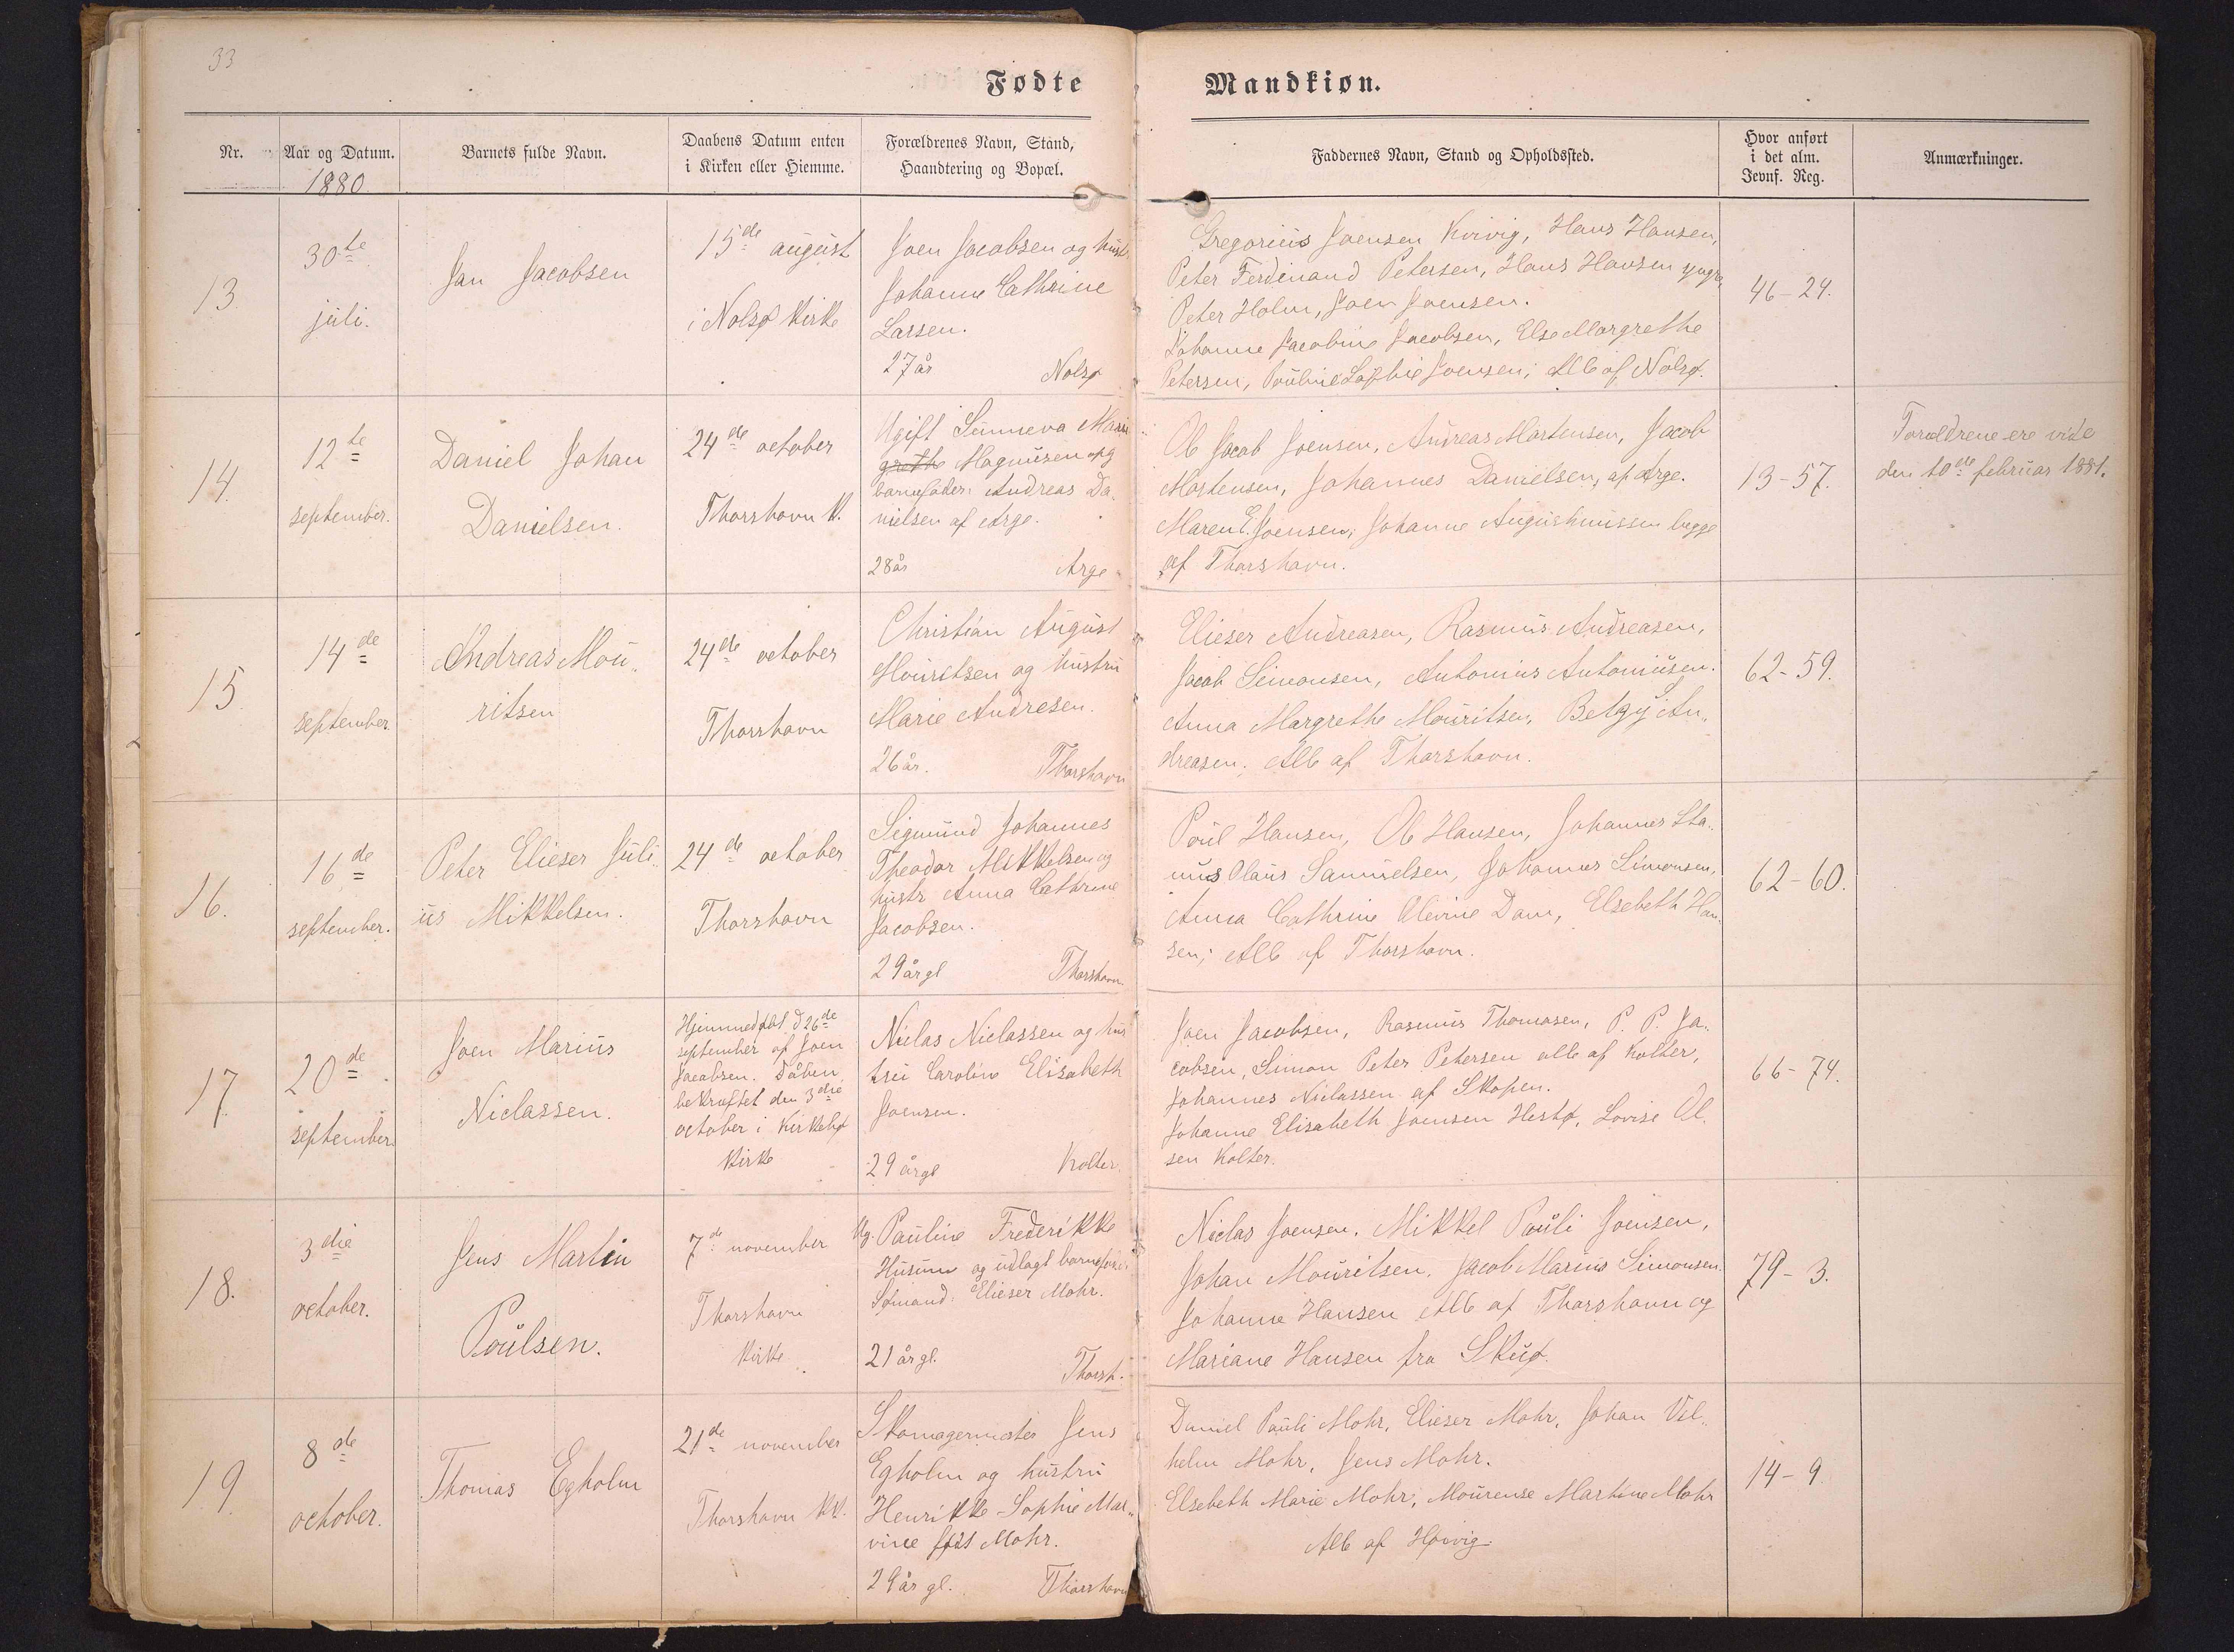 33
Fødte
Mandkiøn.
Nr.
Aar og Datum.
1880
Barnets fulde Navn.
Daabens Datum enten
i Kirken eller Hiemme.
Forældrenes Navn, Stand,
Haandtering og Bopæl.
Faddernes Navn, Stand og Opholdssted.
Hvor anført
i det alm.
Jevnf. Reg.
Anmærkninger.
13.
30te
juli.
Jan Jacobsen
15de august
i Nolsø Kirke
Joen Jacobsen og hust.
Johanne Cathrine
Lassen.
27 år
Nolsø
Gregorius Joensen Kvivig, Hans Hansen,
Peter Ferdinand Petersen, Hans Hansen yngre,
Peter Holm, Joen Joensen.
Johanne Jacobine Jacobsen, Else Margrethe
Petersen, Pouline Sophie Joensen; Alle af Nolsø.
46-24.
14.
12te
september.
Daniel Johan
Danielsen.
24de october
Thorshavn K.
Ugift Sunneva Marie
grethe Magnusen og
barnefader: Andreas Da-
nielsen af Arge.
28 år
Arge
Ole Jacob Joensen, Andreas Mortensen, Jacob
Mortensen, Johannes Danielsen, af Arge.
Maren E. Joensen, Johanne Augustinussen begge
af Thorshavn.
13-57.
Forældrene ere viede
den 10de februar 1881.
15.
14de
september
Andreas Mou-
ritsen
24de october
Thorshavn
Christian August
Mouritsen og hustru
Marie Andresen.
26 år.
Thorshavn
Elieser Andreasen, Rasmus Andreasen,
Jacob Simonsen, Antonius Antoniusen.
Anna Margrethe Mouritsen, Betzy An-
dreasen. Alle af Thorshavn.
62-59.
16.
16de
september.
Peter Elieser Juli-
us Mikkelsen.
24de october
Thorshavn
Sigmund Johannes
Theodor Mikkelsen og
hustr Anna Cathrine
Jacobsen.
29 år gl
Thorshavn
Poul Hansen, Ole Hansen, Johannes
Olaus Samuelsen, Johannes Simonsen,
Anna Cathrine Olevine Dam, Elsebeth Han-
sen; Alle af Thorshavn.
62-60.
17
20de
september.
Joen Marius
Niclassen.
Hjemmedøbt d 26de
september af Joen
Jacobsen. Dåben
bekræftet den 3die
october i Kirkebø
Kirke
Niclas Niclassen og hus
tru Caroline Elisabeth
Joensen.
29 år gl
Kolter.
Joen Jacobsen, Rasmus Thomasen, P. P. Ja-
cobsen, Simon Peter Petersen alle af Kolter,
Johannes Niclassen af Skopen.
Johanne Elisabeth Joensen Hestø, Lovise Ol-
sen Kolter.
66-74.
18.
3die
october.
Jens Martin
Poulsen.
7de november
Thorshavn
Kirke
Ug. Pauline Frederikke
Husum og udlagt barnefader
Sømand: Elieser Mohr.
21 år gl.
Thorsh.
Niclas Joensen, Mikkel Pauli Joensen,
Johan Mouritsen, Jacob Marius Simonsen.
Johanne Hansen Alle af Thorshavn og
Mariane Hansen fra Skuø.
79-3.
19
8de
october.
Thomas Egholm
21de november
Thorshavn KK.
Skomagermester Jens
Egholm og hustru
Henrikke Sophie Mal-
vine født Mohr.
29 år gl.
Thorshavn
Daniel Pauli Mohr, Elieser Mohr, Johan Vil-
helm Mohr, Jens Mohr.
Elsebeth Marie Mohr, Mourense Martine Mohr
Alle af Hoivig
14-9